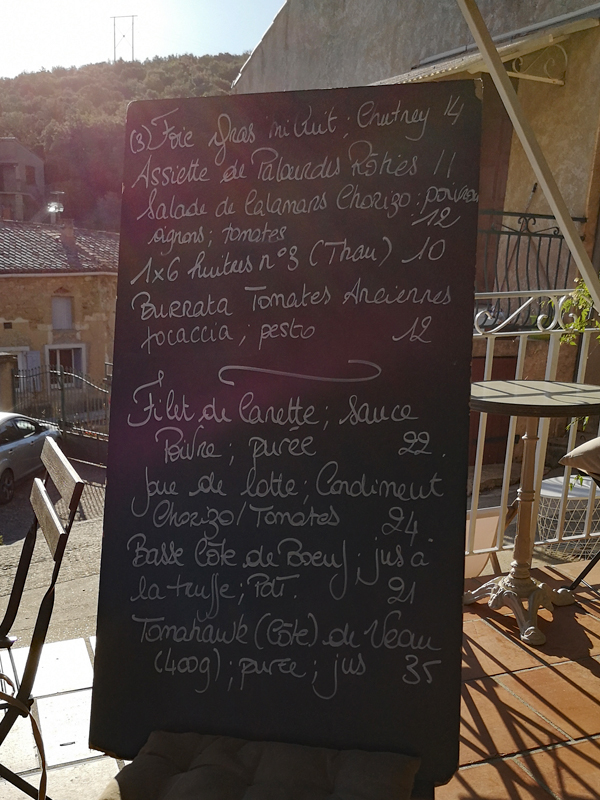 (3) Foie gras mi cuit ; Chutney 14
Assiette de Palourdes Rôties 11
Salade de Calamars Chorizo ; poivron
oignons ; tomates 12
1x6 huitres n°3 (Thau) 10
Burrata Tomates Anciennes
focaccia ; pesto 12
Filet de Canette ; Sauce
Poivre ; purée 22.
Joue de lotte ; Condiment
Chorizo/Tomates 24
Basse Côte de Boeuf ; jus à
la truffe ; PdT. 21
Tomahawk (Côte) de Veau
(400g) ; purée ; jus 35